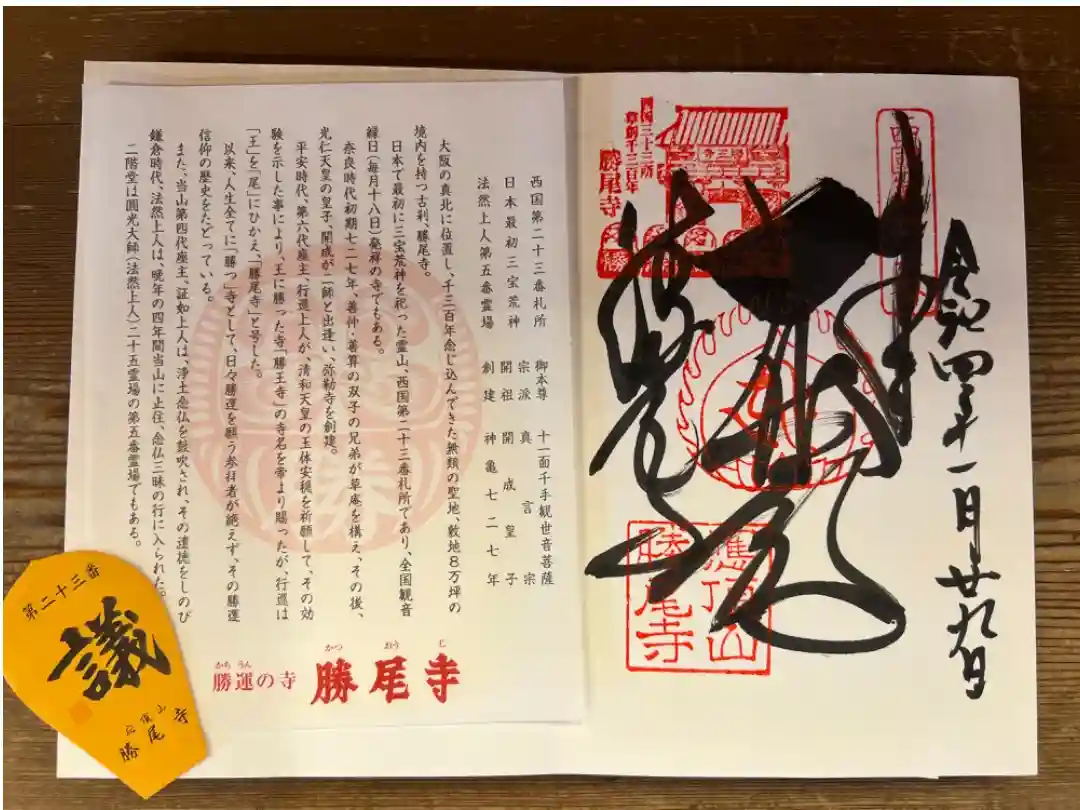 西国第二十三番札所
日本最初三宝荒神
法然上人第五番霊場
御本尊 十一面千手観世音菩薩
宗派 真言宗
開祖 開成皇子
創建 神亀二七年
大阪の真北に位置し、千三百年念じ込んできた無類の聖地、敷地8万坪の
境内を持つ古刹、勝尾寺。
日本で最初に三宝荒神を祀った霊山、西国第二十三番札所であり、全国観音
縁日(毎月十八日)発祥の寺でもある。
奈良時代初期七二七年、善仲・善算の双子の兄弟が草庵を構え、その後、
光仁天皇の皇子、開成が二師と出逢い、弥勒寺を創建。
平安時代、第六代座主、行巡上人が、清和天皇の玉体安穏を祈願して、その効
験を示した事により、王に勝った寺「勝王寺」の寺名を帝より賜ったが、行巡は
「王」を「尾」にひかえ、「勝尾寺」と号した。
以来、人生全てに「勝つ」寺として、日々勝運を願う参拝者が絶えず、その勝運
信仰の歴史をたどっている。
また、当山第四代座主、証如上人は、浄土念仏を鼓吹され、その遺徳をしのび
鎌倉時代、法然上人は、晩年の四年間当山に止住、念仏三昧の行に入られた。
二階堂は圓光大師(法然上人)二十五霊場の第五番霊場でもある。
かち うん
勝運の寺
かつ おう じ
勝尾寺
第二十三番
議
応頂山
勝尾寺
令和四年十一月廿九日
西国三十三所
草創千三百年
勝尾寺
應頂山
勝尾寺